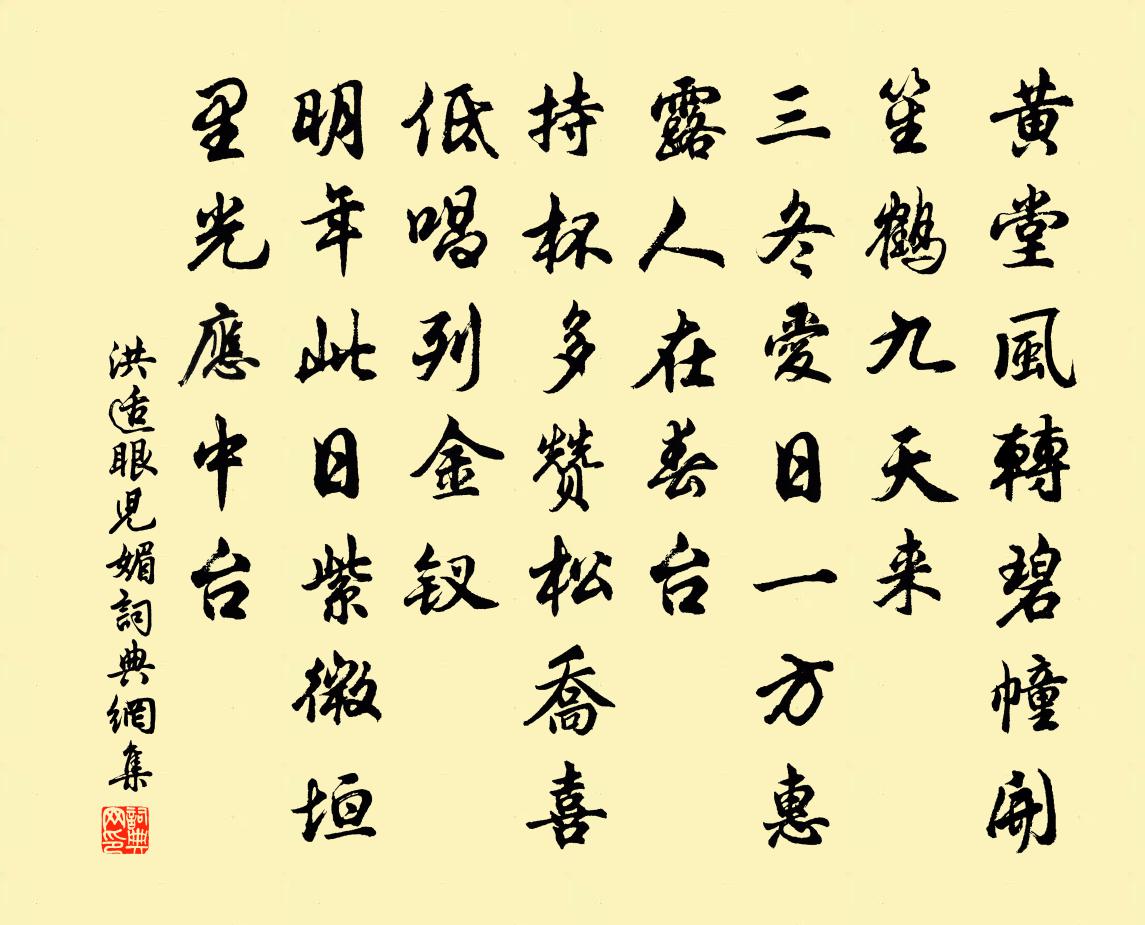 黄堂風轉碧幢開
笙鶴九天来
三冬愛日一方惠
露人在春台
持杯多赞松喬喜
低唱列金钗
明年此日紫微垣
星光應中台
洪适眼兒媚詞典網集
詞典网印